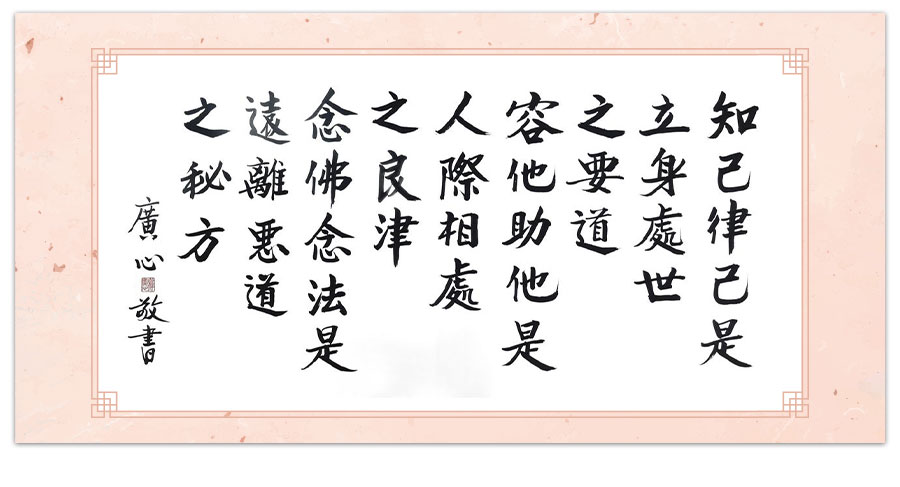 知己律己是
立身處世
之要道
容他助他是
人際相處
之良津
念佛念法是
遠離惡道
之秘方
廣心敬書